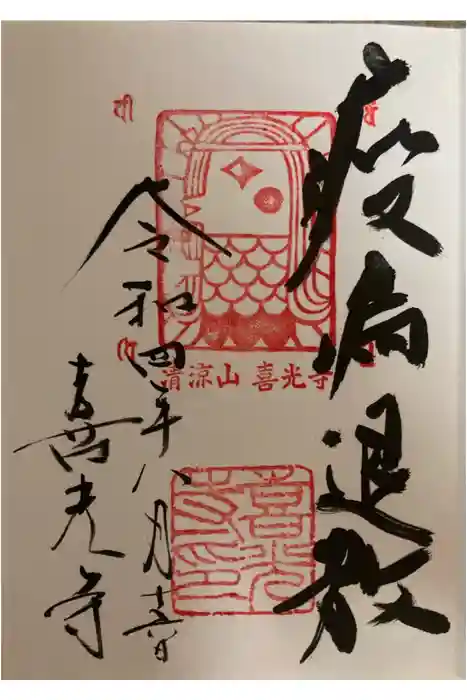 疫病退散
清涼山 喜光寺
喜光
寺印
令和四年八月吉日
喜光寺